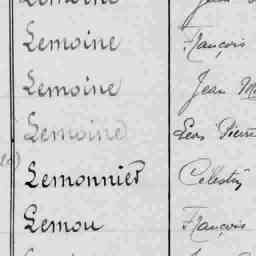 Lemoine François
Lemoine Jean M
Lemoine Léon Pierre
Lemonnier Célestin
Lemou François